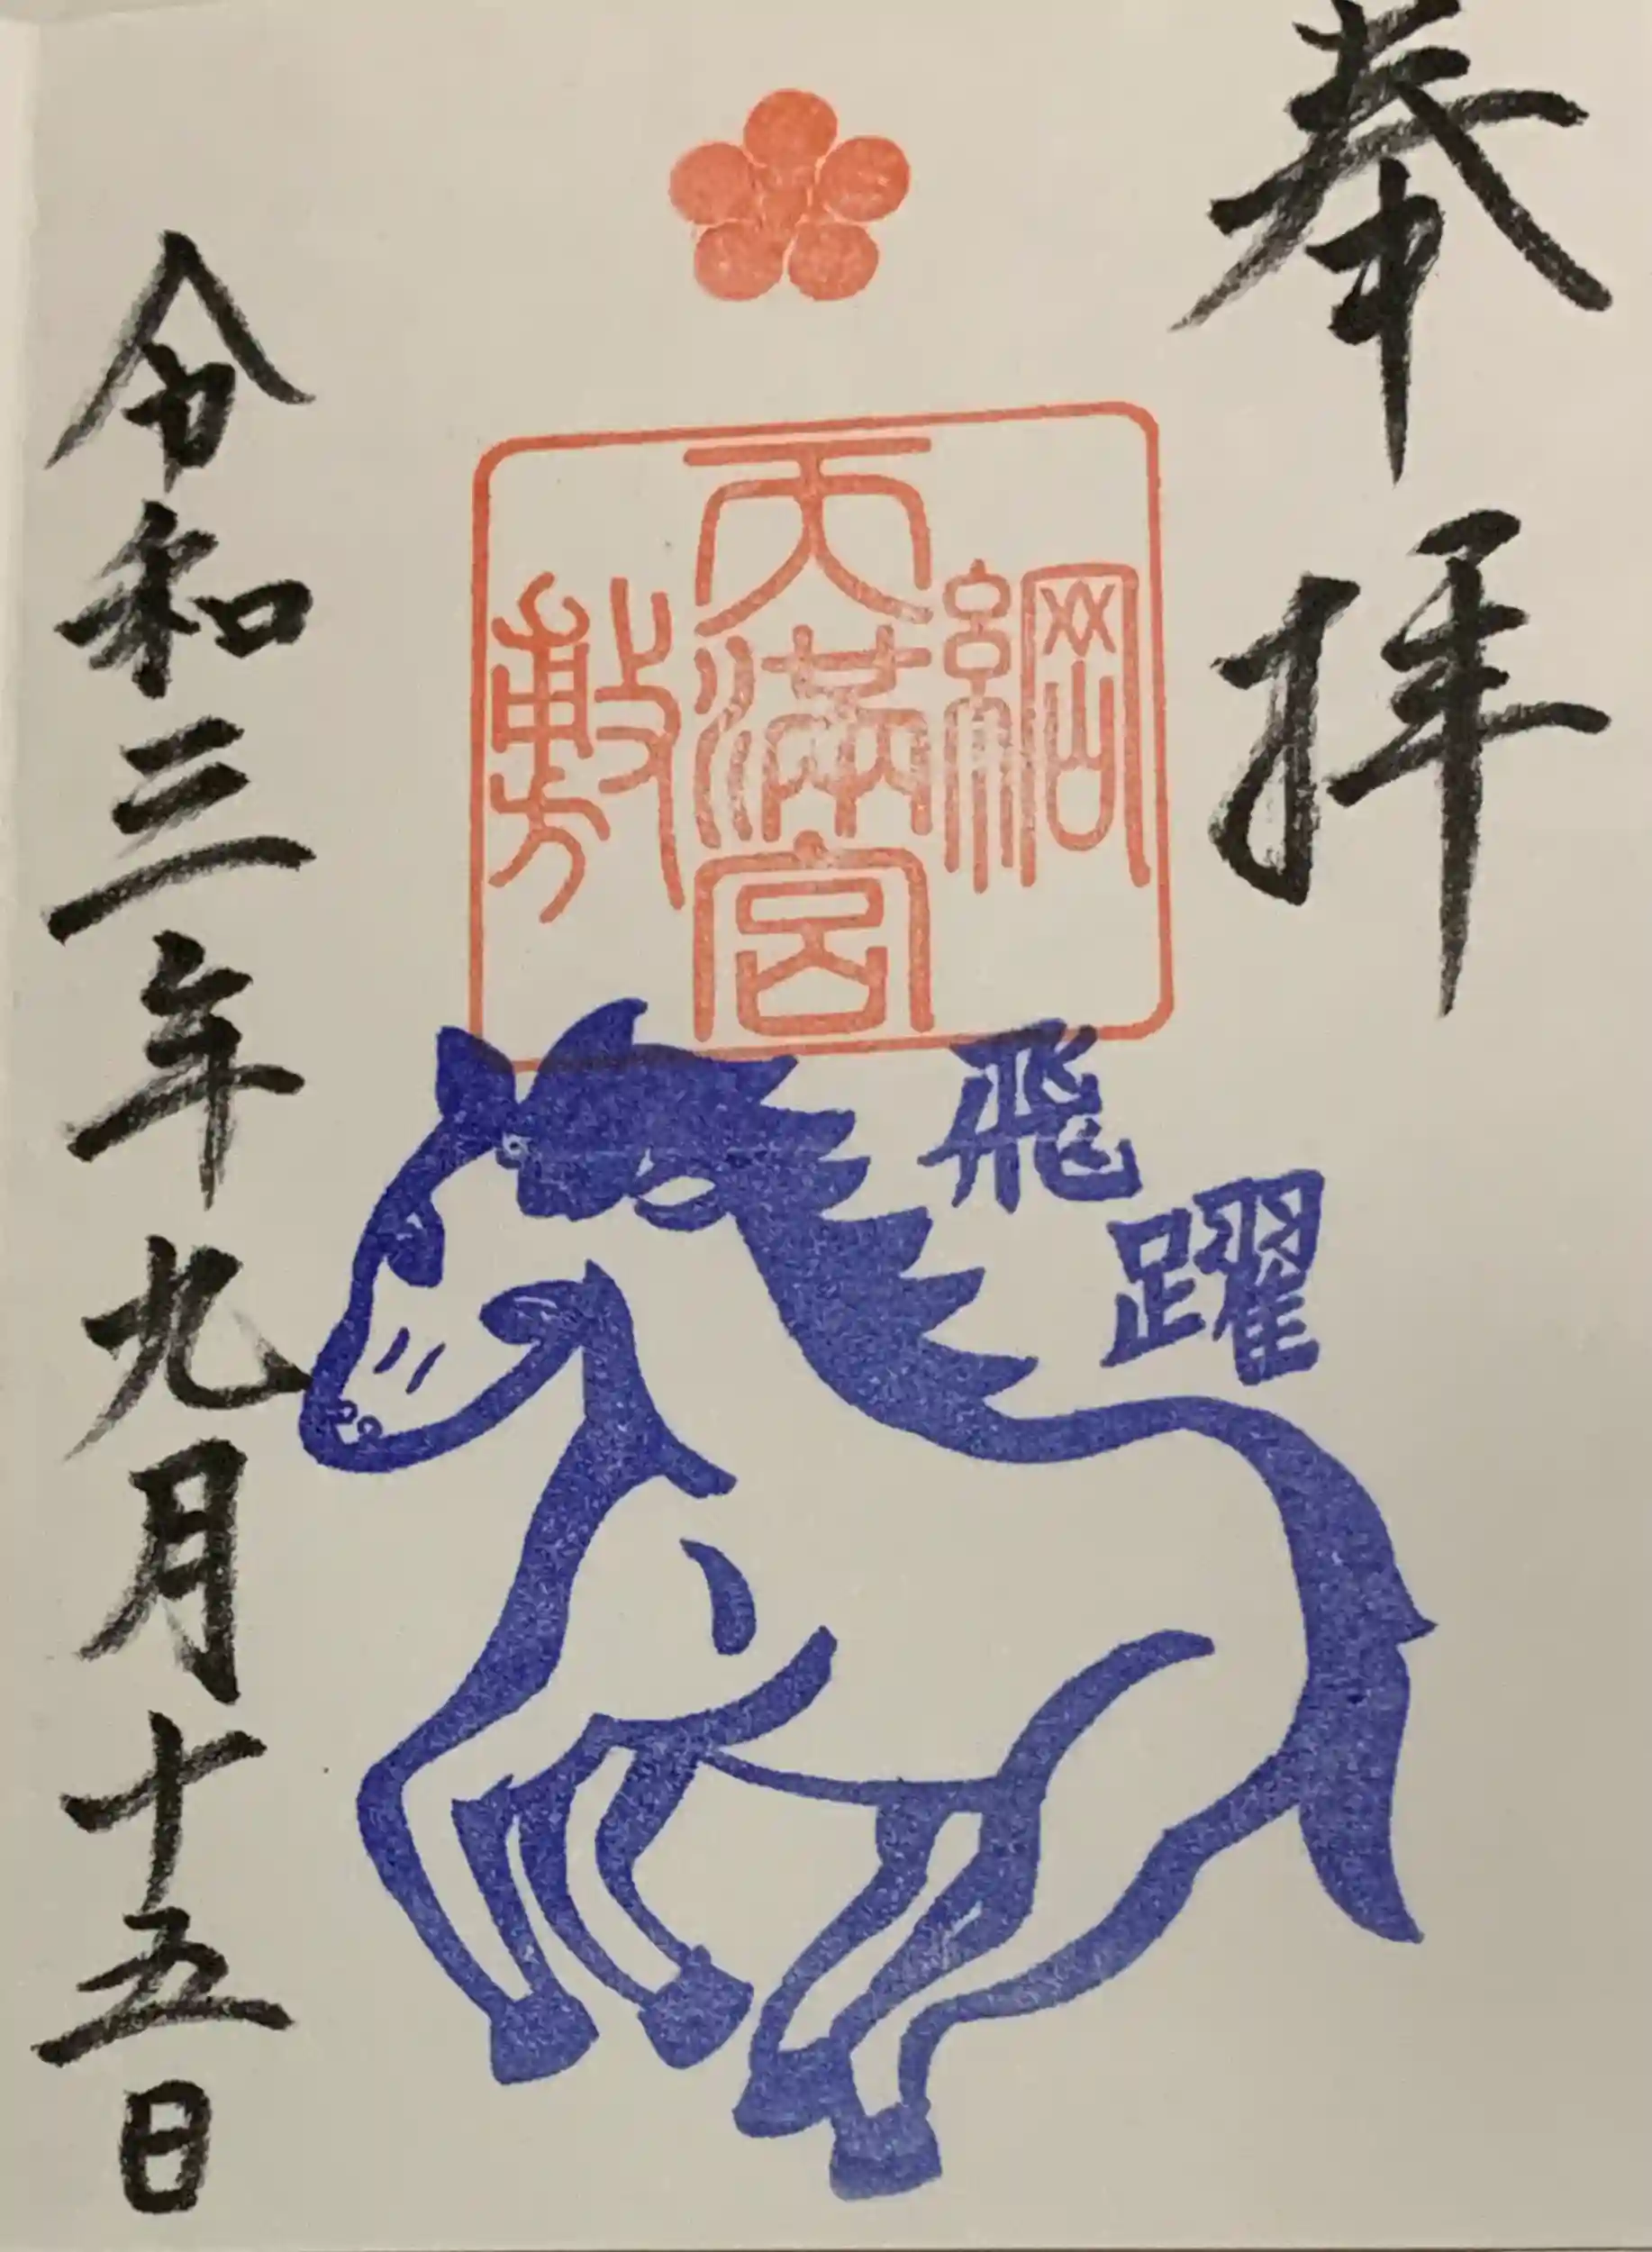 奉拝
綱敷
天満宮
飛躍
令和三年九月十五日